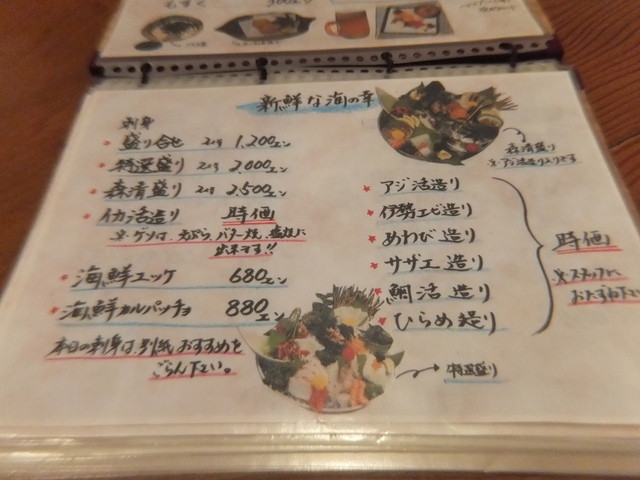 もずく 300エン
新鮮な海の幸
刺身
盛り合せ 2人〜 1,200エン
特選盛り 2人〜 2,000エン
森清盛り 2人〜 2,500エン
イカ活造り 時価
※ゲソは、天ぷら、バター焼、塩焼に
出来ます!!
海鮮ユッケ 680エン
海鮮カルパッチョ 880エン
本日の刺身は、別紙おすすめを
ごらん下さい。
森清盛り
※アジ活造り入りです
アジ活造り
伊勢エビ造り
めわび造り
サザエ造り
鯛活造り
ひらめ造り
時価
※スタッフに
おたずね下さい
特選盛り